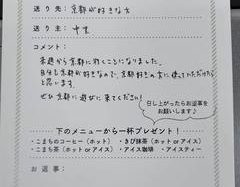 送り先：京都が好きな方
送り主：
コメント：
来週から京都に行くことになりました。
自分も京都が好きなので、京都好きの方に使っていただければと
思います。
ぜひ京都に遊びに来てください！
召し上がったらお返事を
お願いします♪
下のメニューから一杯プレゼント！
・こまちのコーヒー（ホット） ・きび抹茶（ホット）
・こまち茶（ホット or アイス） ・アイス珈琲 ・アイスティー
お返事：